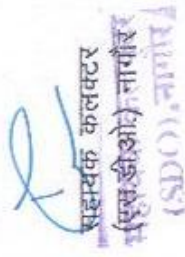 सहायक कलक्टर
(एस.डी.ओ) नागौर
(SDO) नागौर